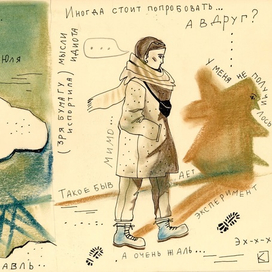 Иногда стоит попробовать...
А вдруг?
юля
(зря бумагу испортила)
мысли идиота
...
У меня не получилось
мимо...
Такое бывает
эксперимент
А очень жаль...
Эх-х-х
авль...